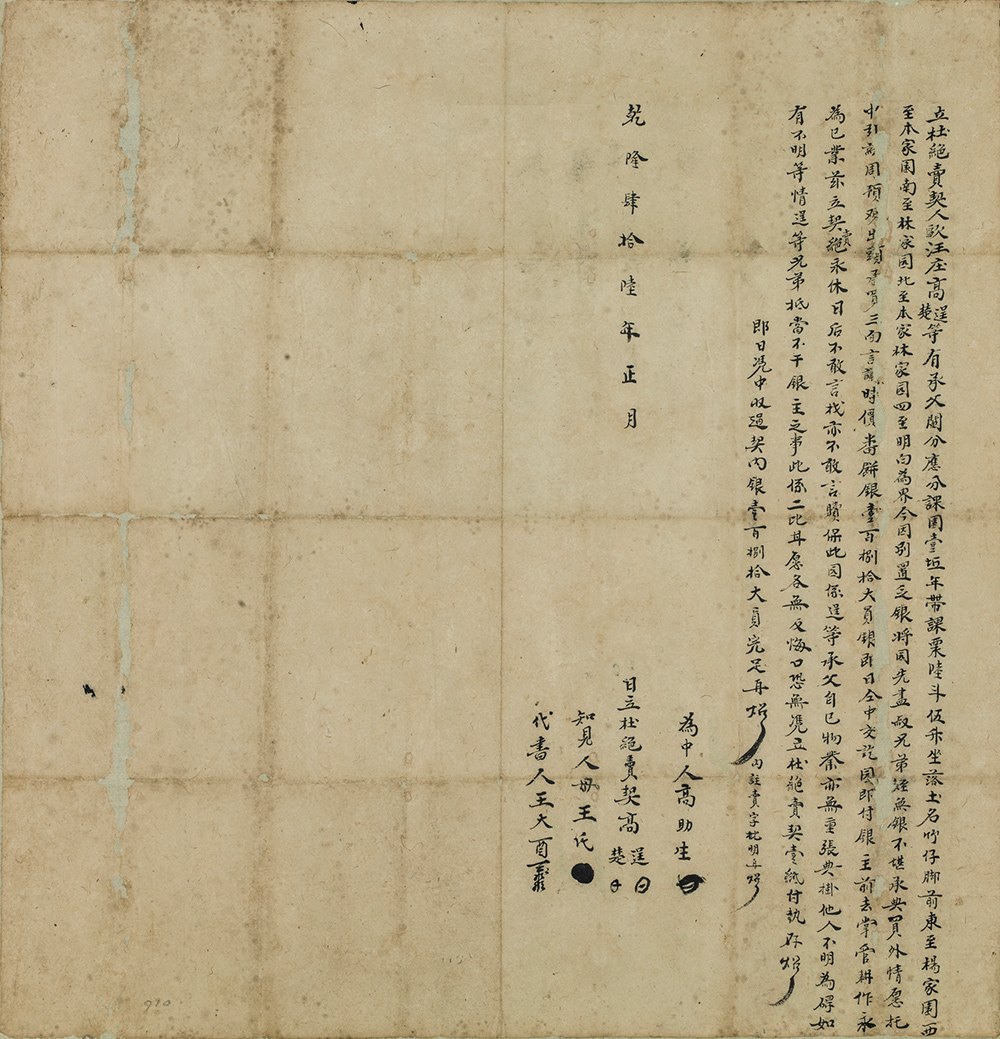 立杜絕賣契人歐汪庄高逞楚等有承父鬮分應分課園壹坵年帶課粟陸斗伍升坐落土名竹仔脚前東至楊家園西
至本家園南至林家園北至本家林家園四至明白為界今因別置乏銀將園先盡叔兄弟姪無銀不堪承典買外情愿托
中引 周預 出頭承買三面言議時價番餅銀壹百捌拾大員銀即日仝中交訖園即付銀主前去掌管耕作永
為己業茲立契絕賣永休日后不敢言找亦不敢言贖保此園係逞等承父自己物業亦無重張典掛他人不明為碍如
有不明等情逞等兄弟抵當不干銀主之事此係二比甘愿各無反悔口恐無凭立杜絕賣契壹紙付執存炤
即日凭中收過契內銀壹百捌拾大員完足再炤 內註賣字批明再炤
為中人高助生
乾隆肆拾陸年正月 日立杜絕賣契高逞楚
知見人母王氏
代書人王大酉
910